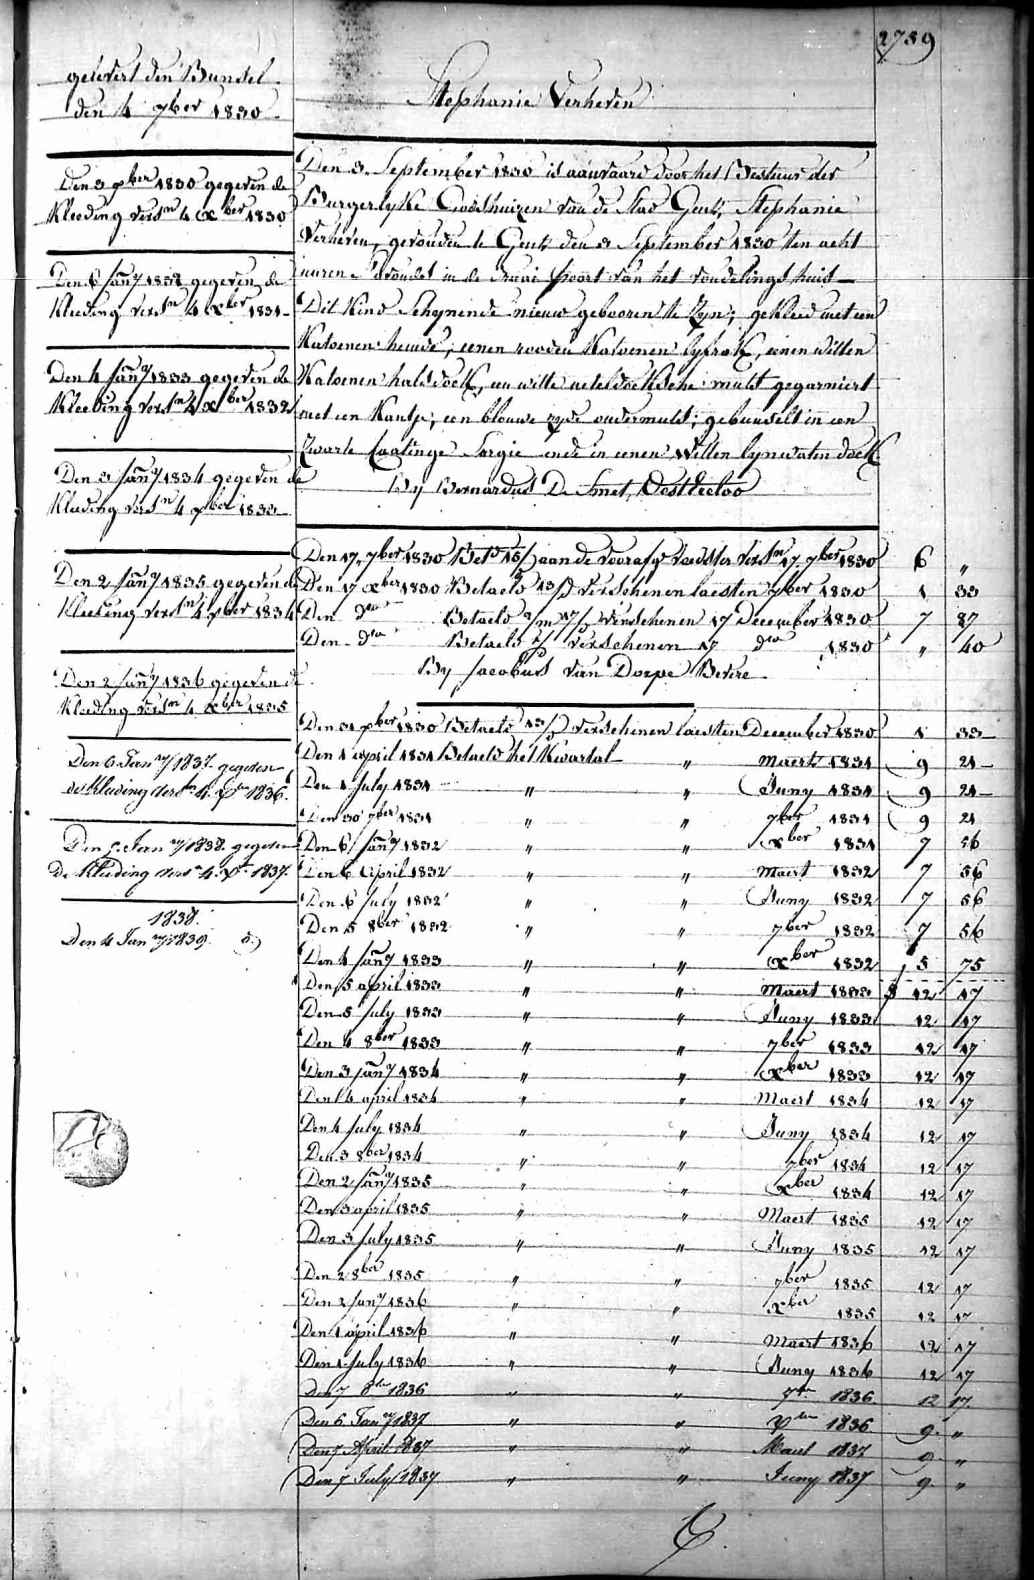 2789
gelevert den Bundel
den 4 7ber 1830
Stephanie Verheven
Den 3 9ber 1830 gegeven de
Kleeding versn 4 xber 1830
Den 6 Jany 1832 gegeven de
Kleeding versn 4 xber 1831
Den 4 Jany 1833 gegeven de
Kleeding versn 4 xber 1832
Den 3 Jany 1834 gegeven de
Kleeding versn 4 xber 1833
Den 2 Jany 1835 gegeven de
Kleeding versn 4 xber 1834
Den 2 Jany 1836 gegeven de
Kleeding versn 4 xber 1835
Den 6 Jany 1837 gegeven
de Kleeding versn 4 xber 1836.
Den 5 Jany 1838 gegeven
De Kleeding versn 4 xber 1837.
1838.
Den 4 Jany 1839.
Den 3 September 1830 is aanvaard door het Bestuur der
Burgerlyke Godshuizen van de Stad Gent, Stephanie
Verheven, gevonden te Gent den 3 September 1830 ten acht
uuren in de poort van het vondelings huis
Dit Kind Schynende nieuw gebooren te Zyn; gekleed met een
Katoenen hemde, eenen rooden Katoenen lyfrok, eenen witten
Katoenen halsdoek, eene witte neteldoeksche muts gegarniert
met een Kantje; een blauwe zyde ondermuts; gebundelt in een
Zwarte Sargie ende in eenen Witten lynwaten doek
By Bernardus De Smet, Oosteeloo
Den 17 7ber 1830 Betd 15/ aan de voorafg voedster versn 17 7ber 1830 6 "
Den 17 xber 1830 Betaeld 13/ verschenen laesten 7ber 1830 1 33
Den do Betaeld 3/m 17/ verschenen 17 December 1830 7 87
Den do Betaeld verschenen 17 do 1830 " 40
By Jacobus Van Dorpe Bevere
Den 31 xber 1830 Betaeld 13/ verschenen laesten December 1830 1 33
Den 1 april 1831 Betaeld het Kwartal " Maert 1831 9 21
Den 1 July 1831 " " Juny 1831 9 21
Den 30 7ber 1831 " " 7ber 1831 9 21
Den 6 Jany 1832 " " xber 1831 7 56
Den 6 April 1832 " " Maert 1832 7 56
Den 6 July 1832 " " Juny 1832 7 56
Den 5 8ber 1832 " " 7ber 1832 7 56
Den 4 Jany 1833 " " xber 1832 5 75
Den 5 april 1833 " " Maert 1833 12 17
Den 5 July 1833 " " Juny 1833 12 17
Den 4 8ber 1833 " " 7ber 1833 12 17
Den 3 Jany 1834 " " xber 1833 12 17
Den 4 april 1834 " " Maert 1834 12 17
Den 4 July 1834 " " Juny 1834 12 17
Den 3 8ber 1834 " " 7ber 1834 12 17
Den 2 Jany 1835 " " xber 1834 12 17
Den 3 april 1835 " " Maert 1835 12 17
Den 3 July 1835 " " Juny 1835 12 17
Den 2 8ber 1835 " " 7ber 1835 12 17
Den 2 Jany 1836 " " xber 1835 12 17
Den 1 april 1836 " " Maert 1836 12 17
Den 1 July 1836 " " Juny 1836 12 17
Den 7 8ber 1836 " " 7ber 1836 12 17
Den 6 Jany 1837 " " xber 1836 9 "
Den 7 April 1837 " " Maert 1837 9 "
Den 7 July 1837 " " Juny 1837 9 "